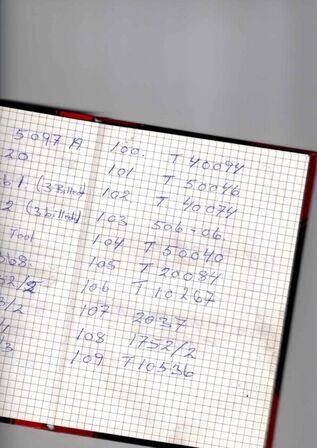 5097 A
20
b 1. (3 Billeder)
2 (3 billeder)
Tool
368.
52/2
3/2
3
100. T 40094
101 T 50046
102. T 40074
103 506-06.
104 T 50040
105 T 20084
106 T 10267
107 2037
108 1752/2
109 T10536